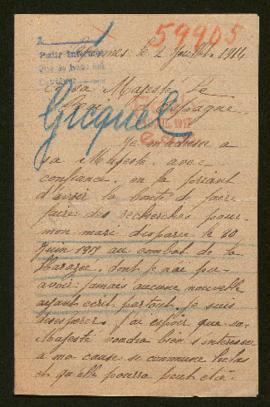 59905
Pedir Informes
Rennes le 2 Juillet 1917
A sa Majesté Le
Roi d'Espagne
Gicquel
Je m'adresse a
sa Majesté avec
confiance, en la priant
d'avoir la bonté de faire
faire des recherches pour
mon mari disparu le 20
Juin 1915 au combat de la
dont je n'ai pu
avoir jamais aucune nouvelle
ayant ecrit partout je suis
desesperée. J'ai espoir que sa
Majesté voudra bien s'interesser
a ma cause si commune helas
et qu'elle pourra peut etre